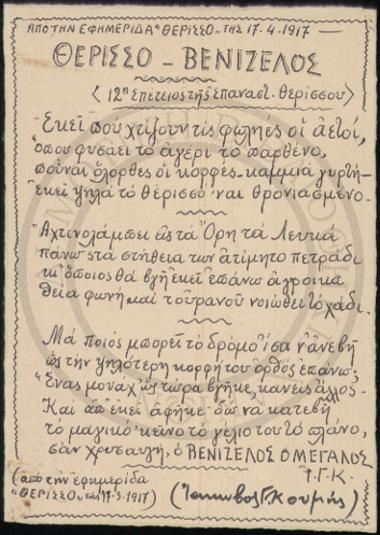 ΑΠΟ ΤΗΝ ΕΦΗΜΕΡΙΔΑ "ΘΕΡΙΣΣΟ" ΤΗΣ 17-4-1917 —
ΘΕΡΙΣΣΟ - ΒΕΝΙΖΕΛΟΣ
〈12η Επέτειος της Επαναστ. Θερίσσου〉
Ἐκεῖ ποὺ χτίζουν τὶς φωληὲς οἱ ἀετοί,
ὅπου φυσάει τὸ ἀγέρι τὸ παρθένο,
ποὖναι ὁλόρθες οἱ κορφές - καμμιὰ γυρτὴ -
ἐκεῖ ψηλὰ τὸ Θέρισσο 'ναι θρονιασμένο.
Ἀχτινολάμπει εἰς τὰ Ὄρη τὰ Λευκὰ
πάνω στὰ στήθεια των ἀτίμητο πετράδι
κι' ὅποιος θὰ βγῆ ἐκεῖ ἐπάνω ἀγροικᾶ
θεία φωνὴ καὶ τ' οὐρανοῦ νοιώθει τὸ χάδι.
Μὰ ποιὸς μπορεῖ τὸ δρόμο ἴσα ν' ἀνεβῆ
ὡς τὴν ψηλότερη κορφή του ὀρθὸς ἐπάνω;
Ἕνας μονάχ' ὡς τώρα βγῆκε, κανεὶς ἄλλος.
Καὶ ἀπ' ἐκεῖ ἀφῆκε δῶ νὰ κατεβῆ
τὸ μαγικὸ κεῖνο τὸ γέλιο του τὸ πλάνο,
σὰν χρυσαυγή, ὁ ΒΕΝΙΖΕΛΟΣ Ο ΜΕΓΑΛΟΣ
Ι.Γ.Κ.
(ἀπὸ τὴν ἐφημερίδα
"ΘΕΡΙΣΣΟ" της 17-3-1917) (Ιάκωβος Γ. Κουμής)